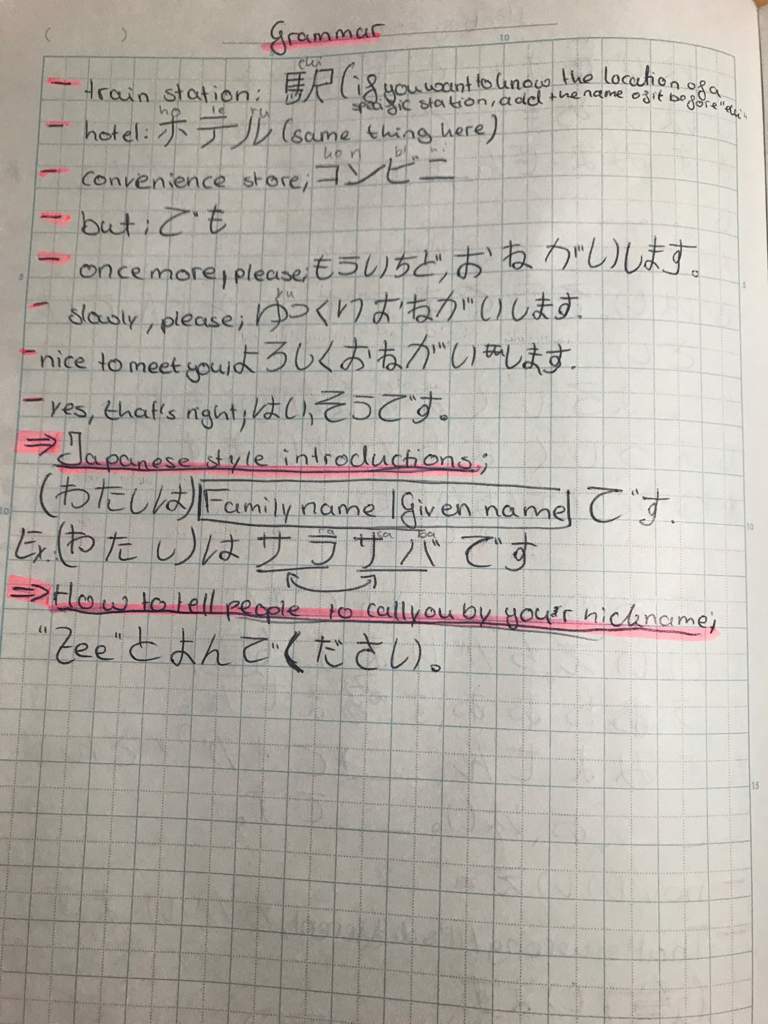 ( )
Grammar
- train station: 駅 (if you want to know the location of a
eki
specific station, add the name of it before "eki"
- hotel: ホテル (same thing here)
ho te ru
- convenience store; コンビニ
kon bi ni
- but; でも
- once more, please; もういちど, おねがいします。
- slowly, please; ゆっくりおねがいします.
yu
- nice to meet you; よろしくおねがいします.
- yes, that's right; はい, そうです。
⇒ Japanese style introductions;
(わたしは) Family name | given name です.
Ex. (わたし)は サラ サバ です
ra sa ba
⇒ How to tell people to call you by your nickname;
"Zee" とよんでください。